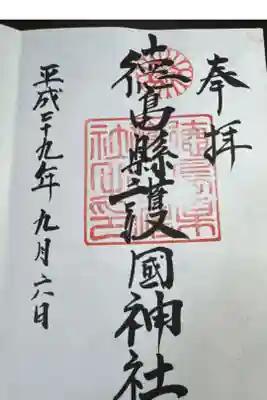 奉拝
徳島縣護國神社
平成二十九年九月六日